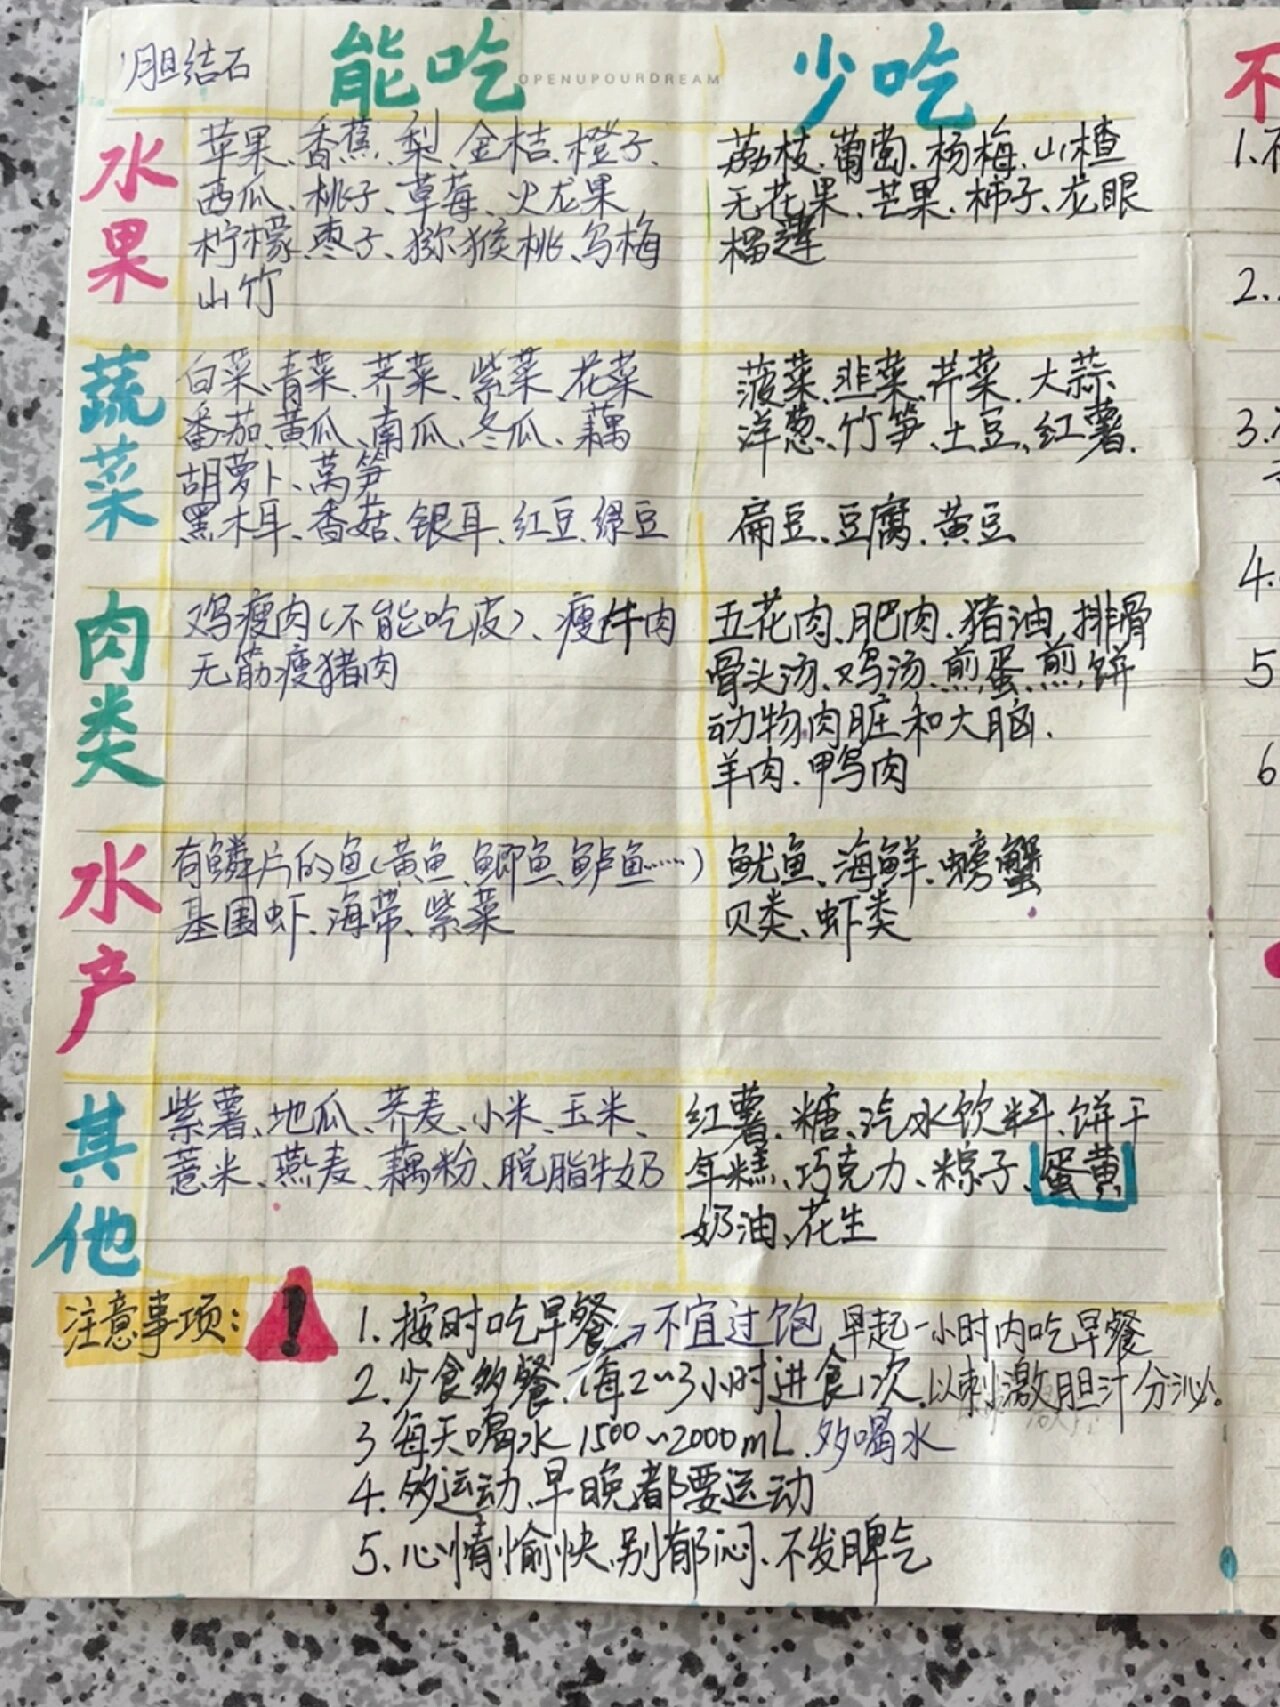 胆结石 能吃 OPENUPOURDREAM 少吃
水果
苹果、香蕉、梨、金桔、橙子、
西瓜、桃子、草莓、火龙果
柠檬、枣子、猕猴桃、乌梅
山竹
荔枝、葡萄、杨梅、山楂
无花果、芒果、柿子、龙眼
榴莲
蔬菜
白菜、青菜、荠菜、紫菜、花菜
番茄、黄瓜、南瓜、冬瓜、藕
胡萝卜、莴笋
黑木耳、香菇、银耳、红豆、绿豆
菠菜、韭菜、芹菜、大蒜
洋葱、竹笋、土豆、红薯、
扁豆、豆腐、黄豆
肉类
鸡瘦肉(不能吃皮)、瘦牛肉
无筋瘦猪肉
五花肉、肥肉、猪油、排骨
骨头汤、鸡汤、煎蛋、煎饼
动物内脏和大脑、
羊肉、鸭肉
水产
有鳞片的鱼(黄鱼、鲫鱼、鲈鱼……)
基围虾、海带、紫菜
鱿鱼、海鲜、螃蟹
贝类、虾类
其他
紫薯、地瓜、荞麦、小米、玉米、
薏米、燕麦、藕粉、脱脂牛奶
红薯、糖、汽水饮料、饼干
年糕、巧克力、粽子、蛋黄
奶油、花生
注意事项: !
1. 按时吃早餐→不宜过饱 早起一小时内吃早餐
2. 少食多餐、每2~3小时进食1次、以刺激胆汁分泌。
3 每天喝水1500~2000mL、多喝水
4. 多运动、早晚都要运动
5. 心情愉快、别郁闷、不发脾气
不
1.
2.
3.
4.
5
6